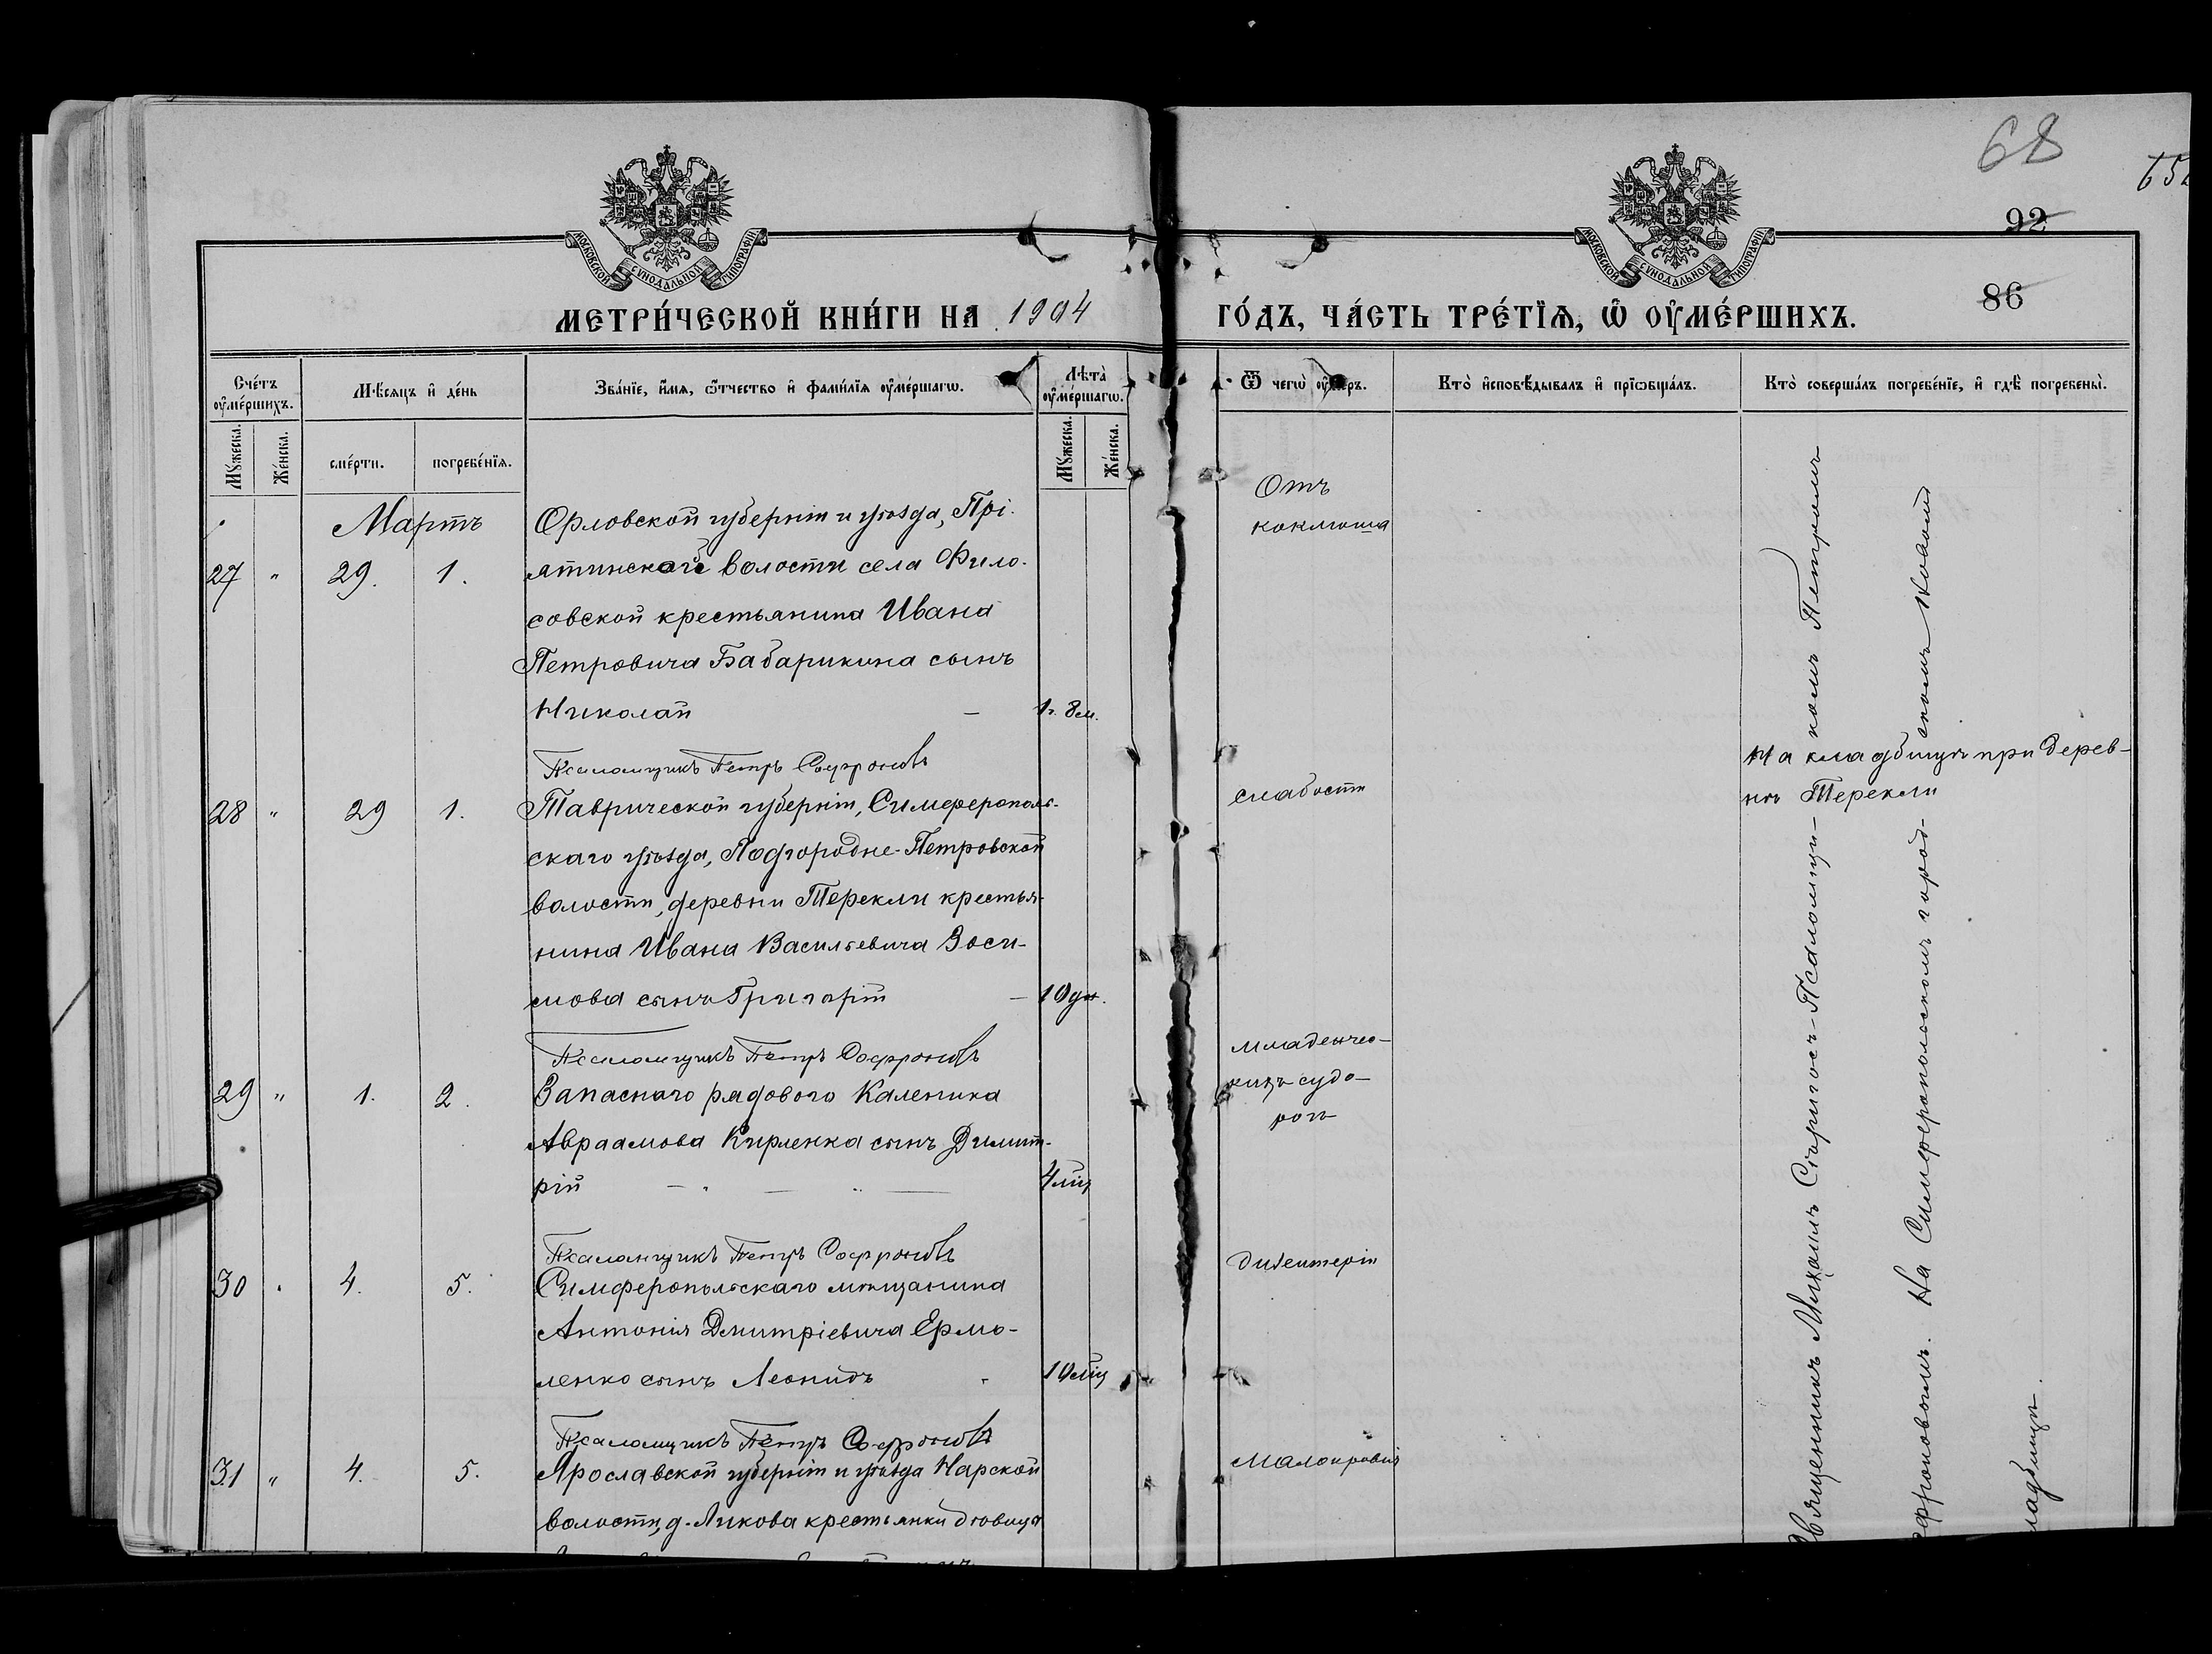 68
652
92
86
МОСКОВСКОЙ СУНОДАЛЬНОЙ ТИПОГРАФІИ
МОСКОВСКОЙ СУНОДАЛЬНОЙ ТИПОГРАФІИ
МЕТРИ́ЧЕСКОЙ КНИ́ГИ НА 1904 ГО́ДЪ, ЧА́СТЬ ТРЕ́ТЇѦ, Ѡ ОУМЕ́РШИХЪ.
Сче́тъ оумершихъ.
Мѣсяцъ и де́нь
Зва́нїе, и́мя, ѻтчество и фами́лїя оумершагѡ.
Лѣта̀ оумершагѡ.
Ѿ чегѡ̀ оумеръ.
Кто̀ исповѣдывалъ и прїѡбщалъ.
Кто̀ соверша́лъ погребе́нїе, и гдѣ погребены̀.
Мꙋжеска.
Же́нска.
сме́рти.
погребе́нїя.
Мꙋжеска.
Же́нска.
Мартъ
27 " 29. 1.
Орловской губерніи и уѣзда, Прі-
ятинской волости села Фило-
совской крестьянина Ивана
Петровича Бабарикина сынъ
Николай — 1г. 8м.
Отъ
коклюша
Псаломщикъ Петръ Софроновъ
28 " 29 1.
Таврической губерніи, Симферополь-
скаго уѣзда, Подгородне-Петровской
волости, деревни Терекли крестья-
нина Ивана Васильевича Зоси-
мова сынъ Григорій — 10дн.
слабости
На кладбищѣ при дерев-
нѣ Терекли
Псаломщикъ Петръ Софроновъ
29 " 1. 2.
Запаснаго рядового Каленика
Авраамова Кирленка сынъ Димит-
рій 4мѣц
младенчес-
кихъ судо-
рогъ
Псаломщикъ Петръ Софроновъ
30 " 4. 5.
Симферопольскаго мѣщанина
Антонія Дмитріевича Ермо-
ленко сынъ Леонидъ 10мѣц
дизентеріи
Псаломщикъ Петръ Софроновъ
31 " 4. 5.
Ярославской губерніи и уѣзда Нарской
волости, д. Ликова крестьянки дѣвицы
Малокровія
Священникъ Михаилъ Спиригосъ-Псаломщи-комъ Петромъ
Софроновымъ. На Симферопольскомъ город-скомъ новомъ
кладбищѣ.